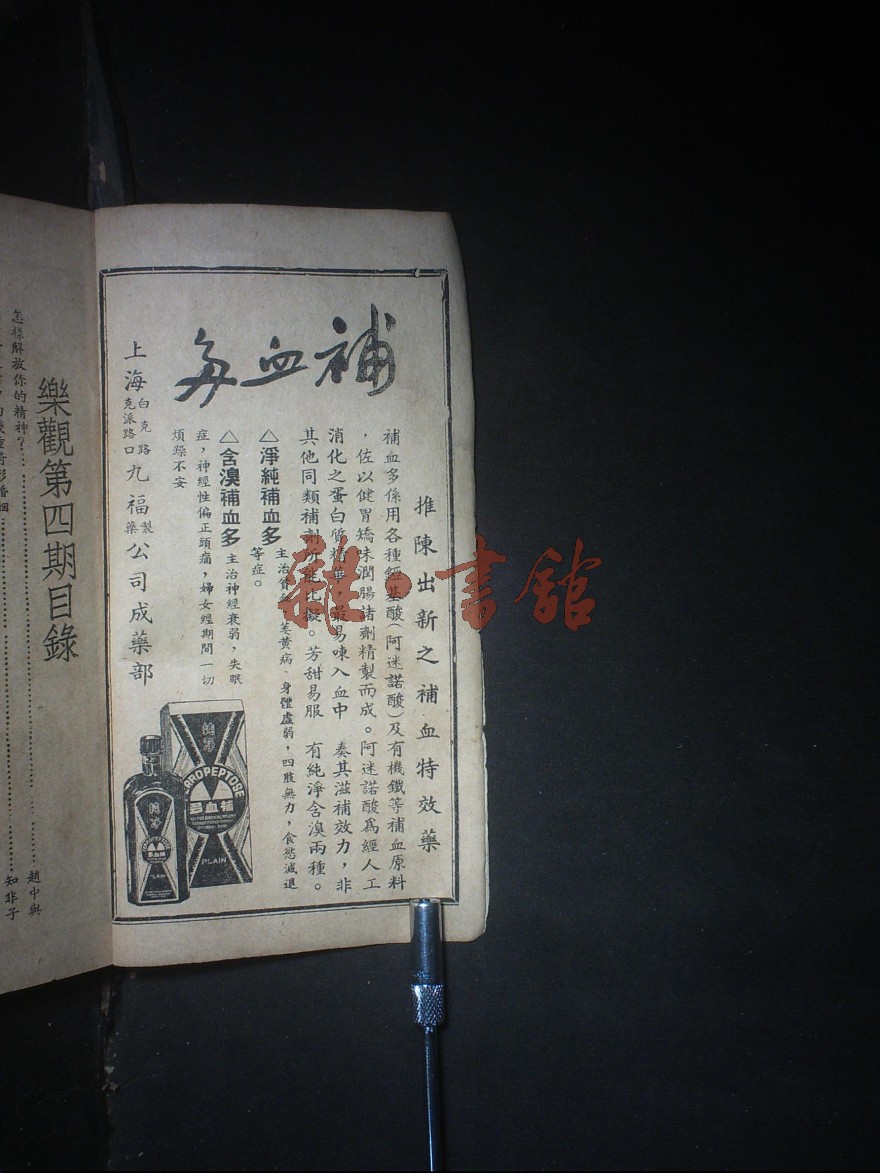 補血多
推陳出新之補血特效藥
補血多係用各種錏基酸(阿迷諾酸)及有機鐵等補血原料
，佐以健胃矯味潤腸諸劑精製而成。阿迷諾酸為經人工
消化之蛋白質精華，最易崠入血中　奏其滋補效力，非
其他同類補劑所能比擬。芳甜易服　有純淨含溴兩種。
△淨純補血多
萎黃病、身體虛弱，四肢無力，食慾減退
等症。
△含溴補血多 主治神經衰弱，失眠
症，神經性偏正頭痛，婦女經期間一切
煩躁不安
上海白克路克派路口九福製藥公司成藥部
純淨
FERROPEPTOSE
補血多
PLAIN
純淨
補血多
PLAIN
龍·書館
樂觀第四期目錄
怎樣解放你的精神？
趙中與
知非子